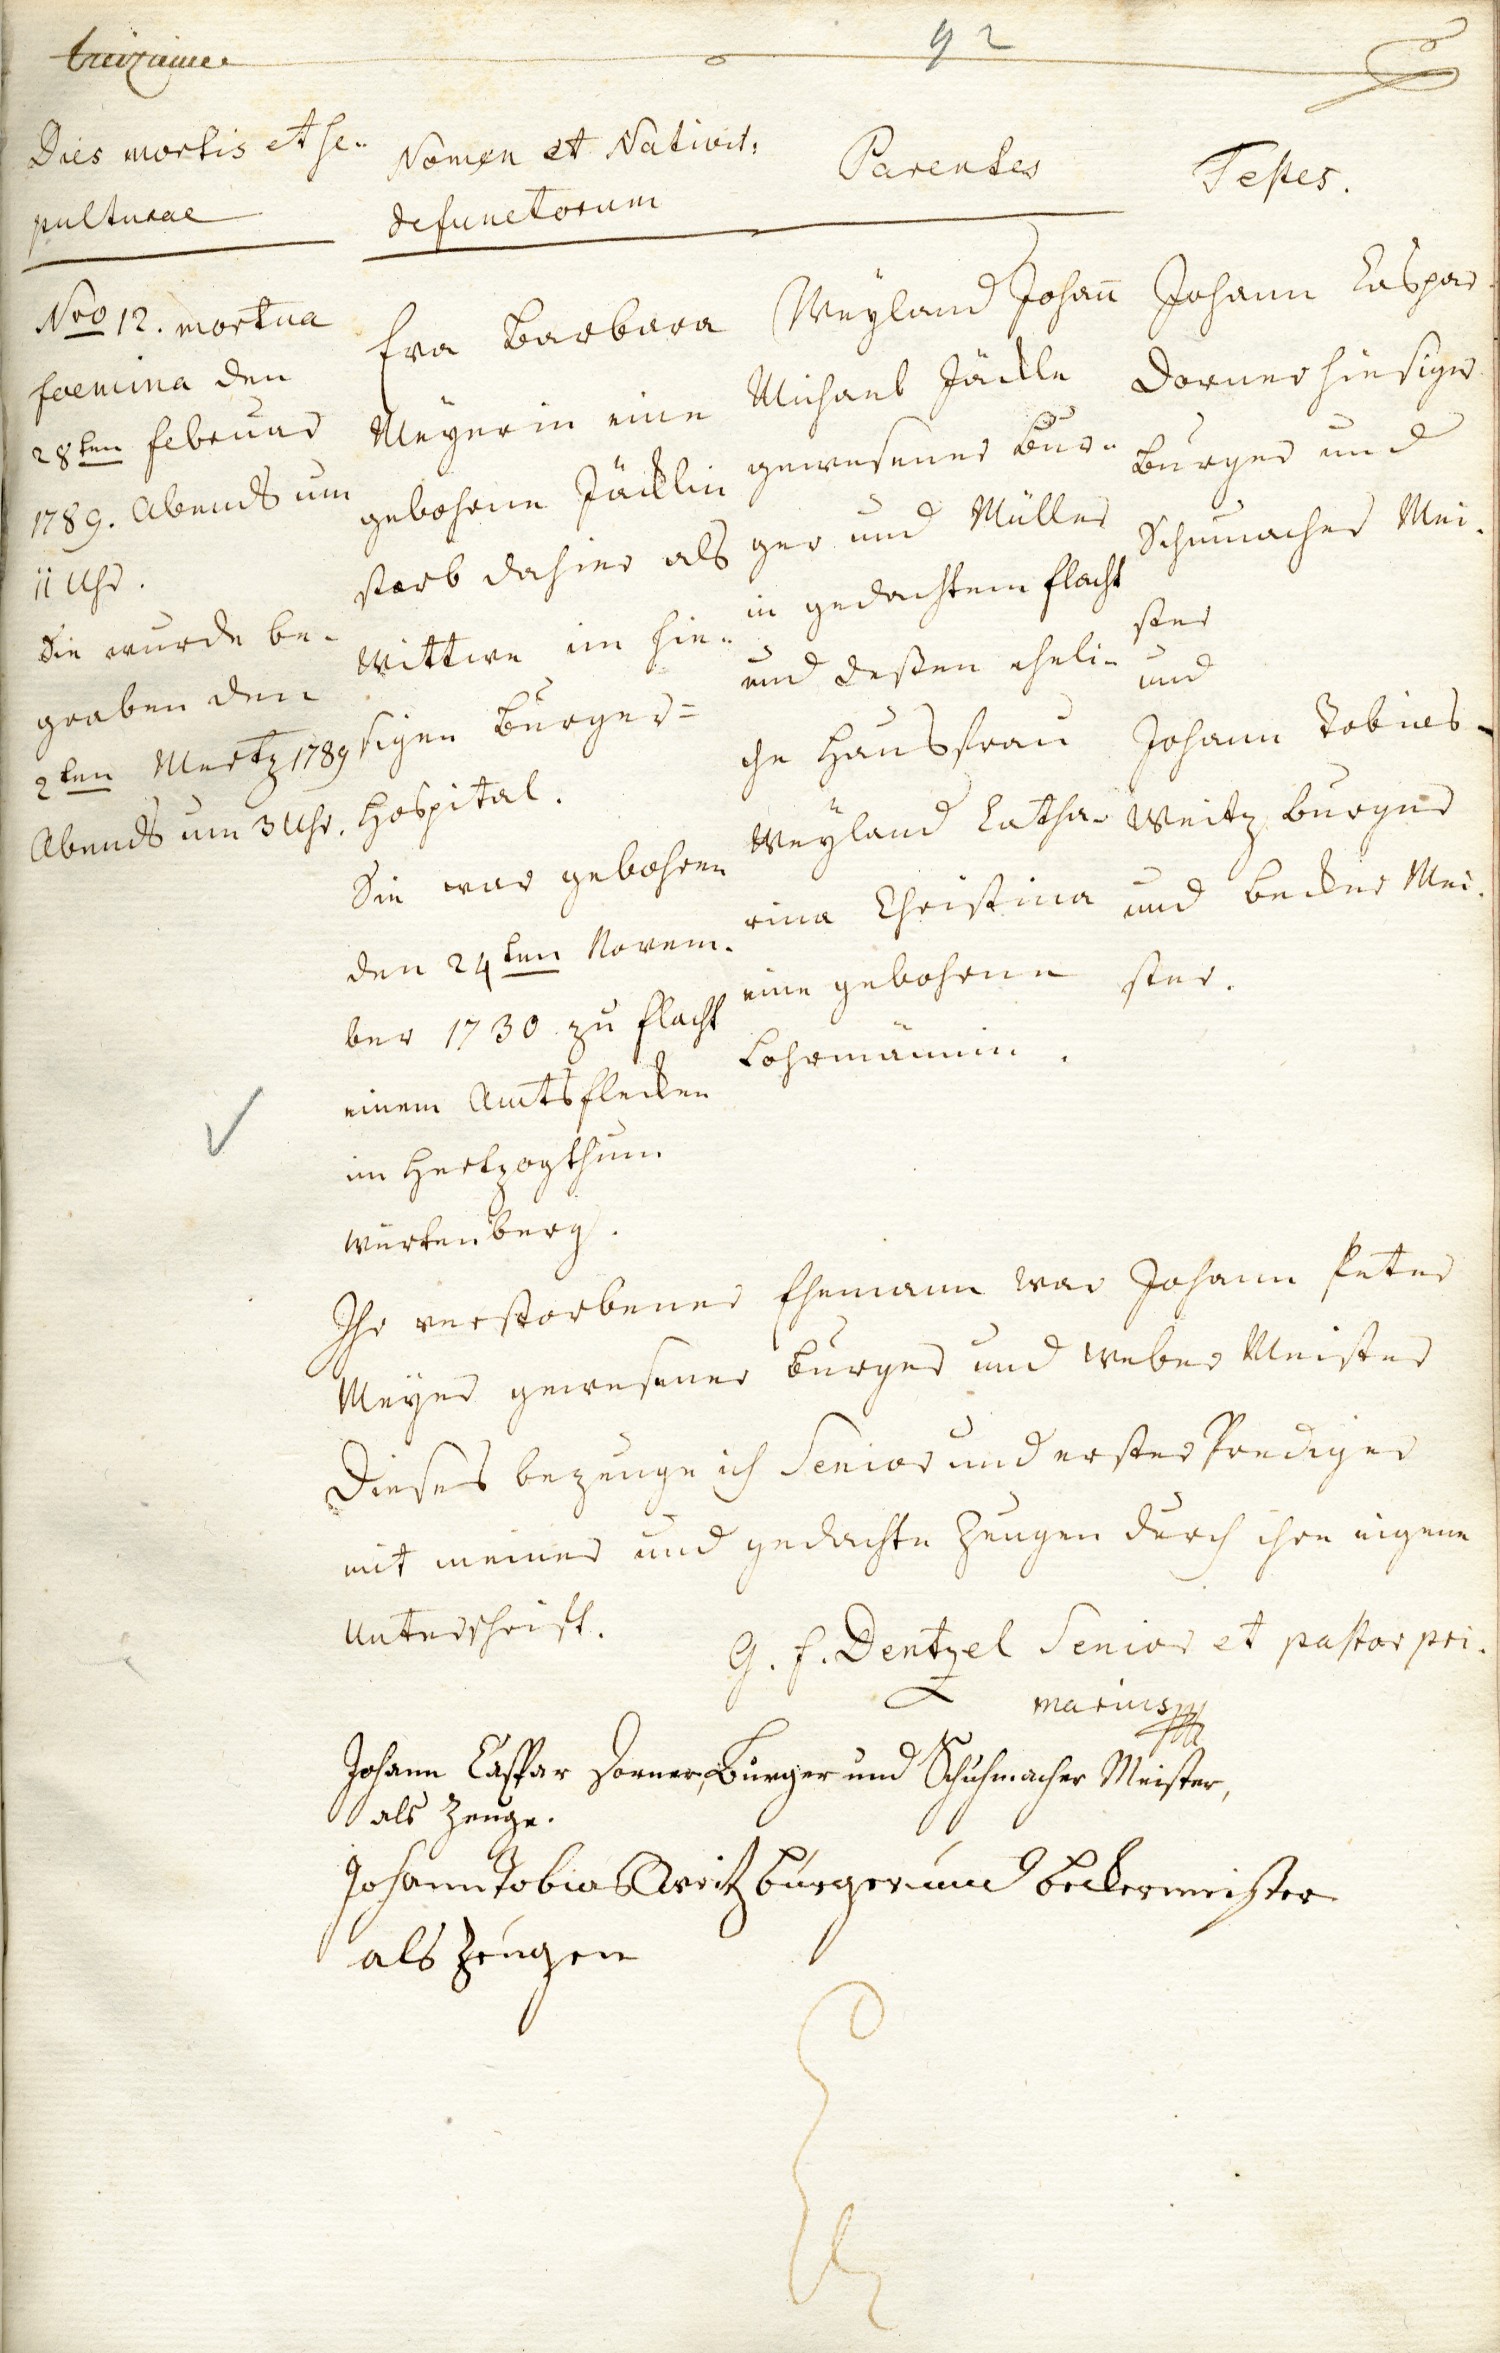 treizieme
92
Dies mortis et se-
pulturae
Nro 12. mortua
foemina den
28ten februar
1789. Abends um
11 Uhr.
Sie wurde be-
graben den
2ten Mertz 1789
Abends um 3 Uhr.
Nomen et Nativit:
defunctorum
Eva Barbara
Meÿerin eine
gebohrne Jäcklin
starb dahier als
Wittwe im hie-
sigen Burger=
Hospital.
Sie war gebohren
den 24ten Novem-
ber 1730 zu flacht
einem Amtsflecken
im Hertzogthum
Würtenberg.
Parentes
Weÿland Johann
Michael Jäckle
gewesener Bur-
ger und Müller
in gedachtem flacht
und deßen eheli-
che Hausfrau
Weÿland Catha-
rina Christina
eine gebohrne
Lohrmännin.
Testes.
Johann Caspar
Dorner hiesiger
Burger und
Schumacher Mei-
ster
und
Johann Tobias
Weitz Burger
und Becker Mei-
ster.
Ihr verstorbener Ehemann war Johann Peter
Meÿer gewesener Burger und Weber Meister
Dieses bezeuge ich Senior und erster Prediger
mit meiner und gedachte Zeugen durch ihre eigene
Unterschrift.
G. F. Dentzel Senior et pastor pri-
marius
Johann Caspar Dorner, Burger und Schuhmacher Meister,
als Zeuge.
Johann Tobias Weitz burger und beckermeister
als Zeugen